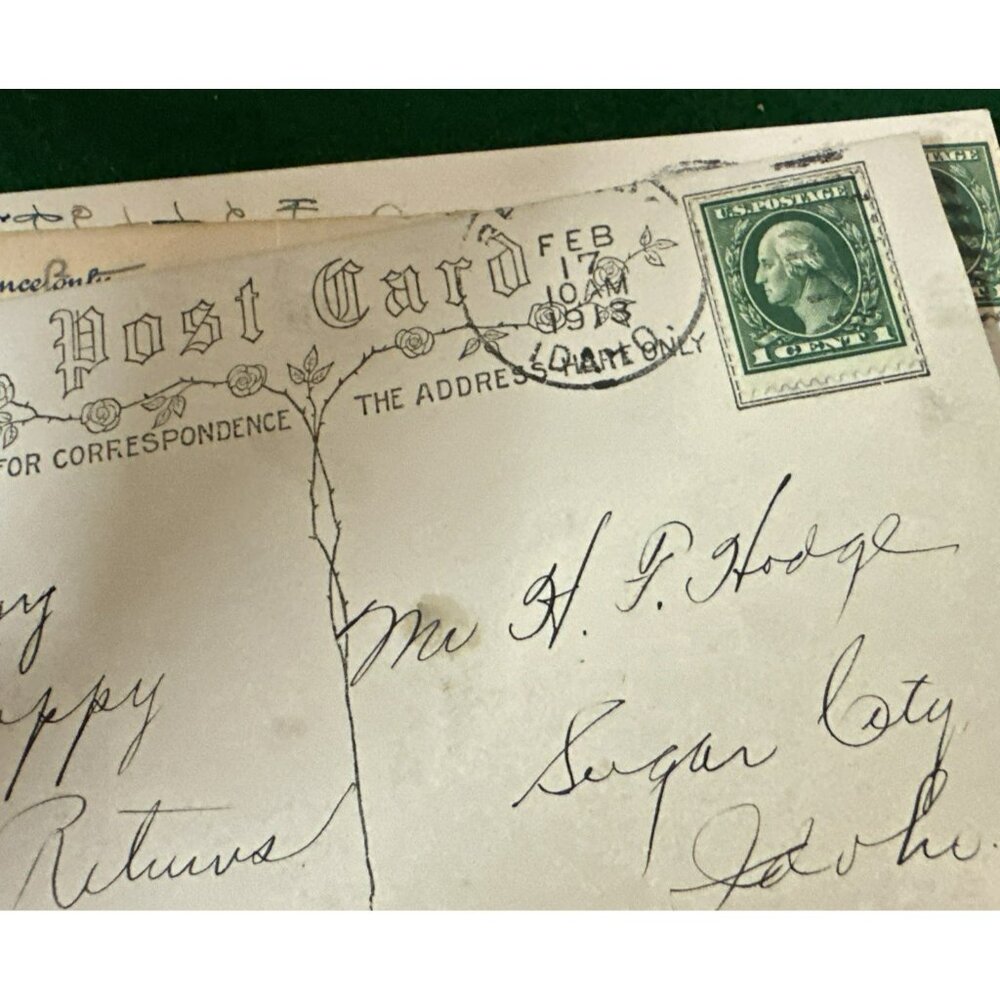 Post Card
FEB
17
10 AM
1913
IDAHO.
U.S. POSTAGE
1 CENT 1
FOR CORRESPONDENCE
THE ADDRESS HERE ONLY
Happy
Returns
Mr H. F. Hodge
Sugar City
Idaho.